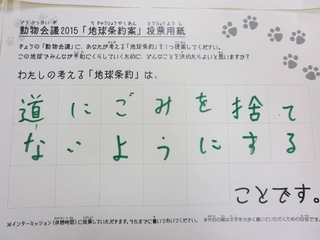 動物会議2015「地球条約案」投票用紙
きょうの「動物会議」に、あなたが考える「地球条約」を1つ提案してください。
この地球でみんなが平和にくらしていくために、どんなことを決めたらよいと思いますか?
わたしの考える「地球条約」は、
道にごみを捨て
ないようにする
ことです。
※インターミッション(休憩時間)に投票していただきます。それまでに書いておいてください。